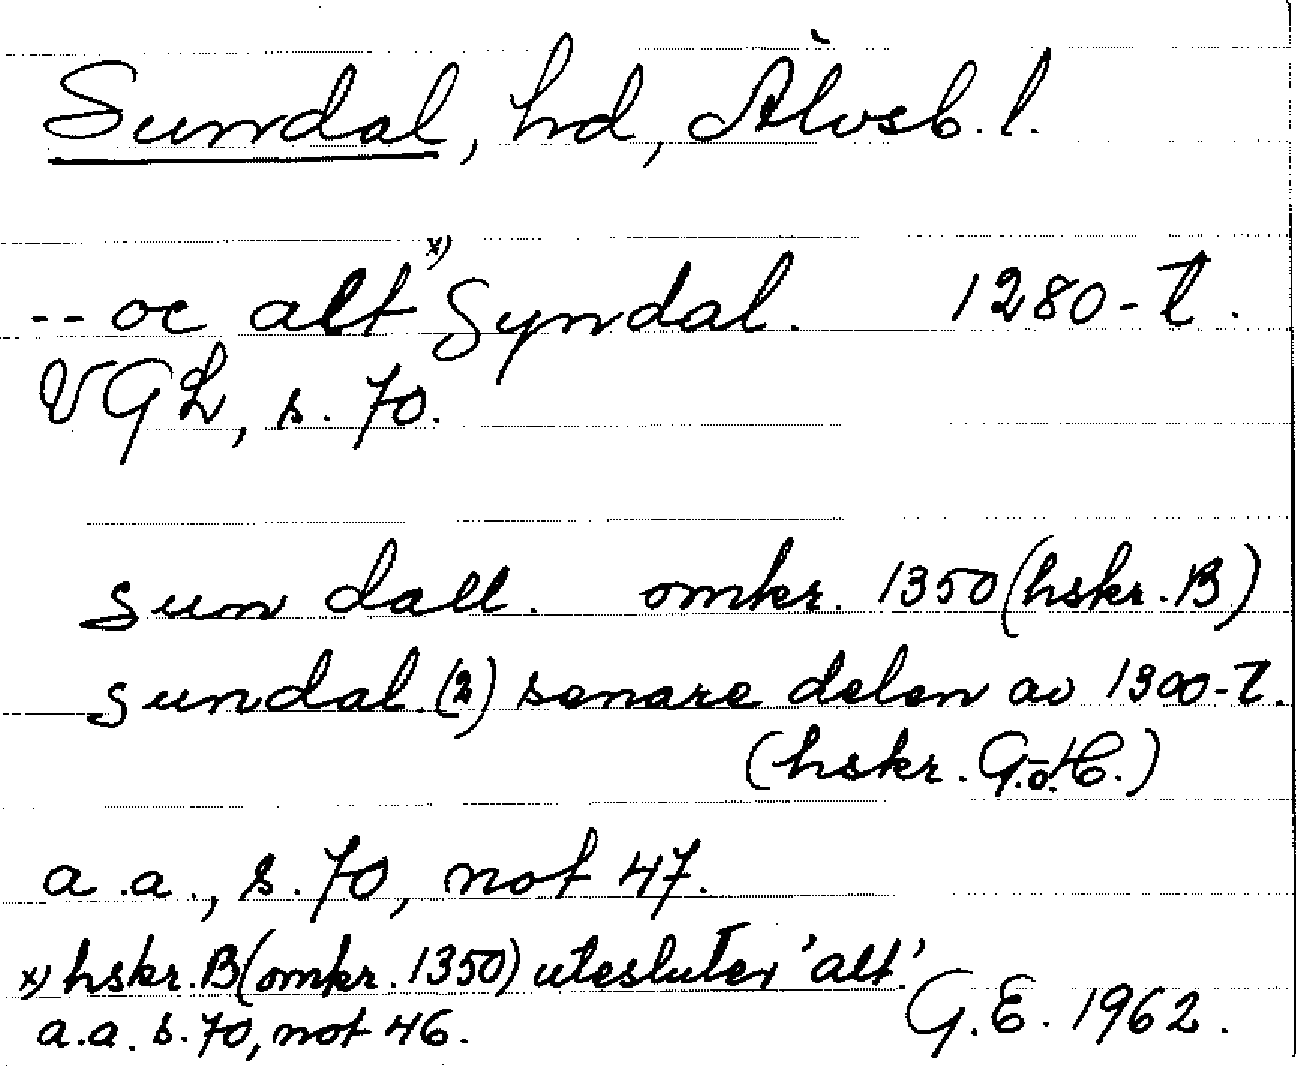 Sundal, hd, Älvsb. l.
-- oc alt x) Syndal. 1280-t.
VGL, s. 70.
sun dall. omkr. 1350 (hskr. B)
sundal. (2) senare delen av 1300-t.
(hskr. G.o.H.)
a.a., s. 70, not 47.
x) hskr. B (omkr. 1350) utesluter 'alt'.
a.a. s. 70, not 46.
G.E. 1962.